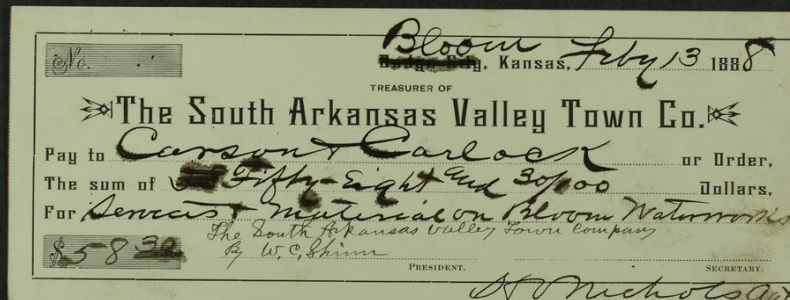 Bloom
No. Dodge City, Kansas, Feby 13 1888
TREASURER OF
The South Arkansas Valley Town Co.
Pay to Carson & Carlock or Order,
The sum of Fifty-Eight and 30/100 Dollars,
For Services & Material on Bloom Waterworks
$58 30 The South Arkansas Valley Town Company
By W. C. Shinn
PRESIDENT. SECRETARY.
Nichols Agt